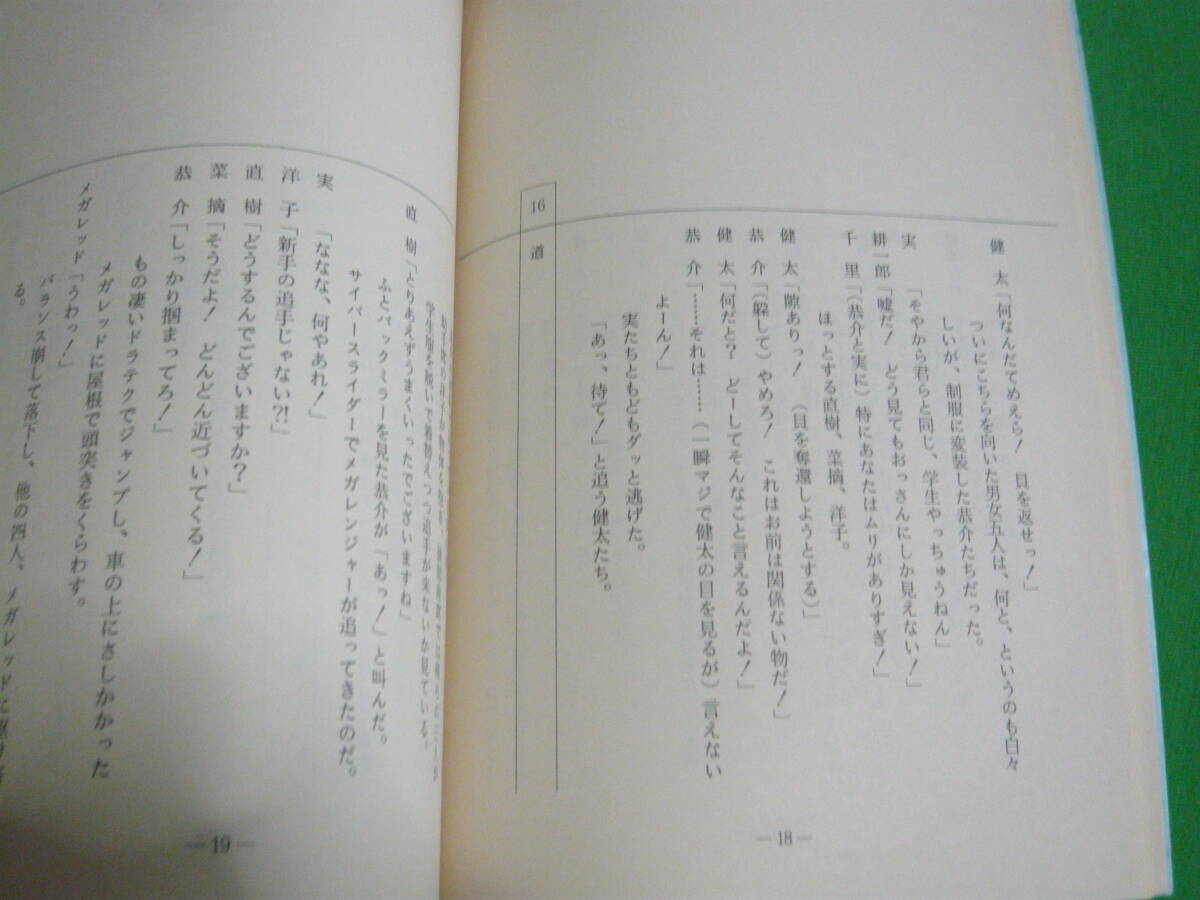 健　太「何なんだてめえら！　貝を返せっ！」
ついにこちらを向いた男女五人は、何と、というのも白々
しいが、制服に変装した恭介たちだった。
実　　「そやから君らと同じ、学生やっちゅうねん」
耕一郎「嘘だ！　どう見てもおっさんにしか見えない！」
千　里「（恭介と実に）特にあなたはムリがありすぎ！」
ほっとする直樹、菜摘、洋子。
健　太「隙ありっ！　（貝を奪還しようとする）」
恭　介「（躱して）やめろ！　これはお前は関係ない物だ！」
健　太「何だと？　どーしてそんなこと言えるんだよ！」
恭　介「………それは………（一瞬マジで健太の目を見るが）言えない
よーん！」
実たちともどもダッと逃げた。
「あっ、待て！」と追う健太たち。
16　道
—18—
学生服を脱いで着替えつつ追手が来ないか見ている。
直　樹「とりあえずうまくいったでございますね」
ふとバックミラーを見た恭介が「あっ！」と叫んだ。
サイバースライダーでメガレンジャーが追ってきたのだ。
実　　「ななな、何やあれ！」
洋　子「新手の追手じゃない?!」
直　樹「どうするんでございますか？」
菜　摘「そうだよ！　どんどん近づいてくる！」
恭　介「しっかり掴まってろ！」
もの凄いドラテクでジャンプし、車の上にさしかかった
メガレッドに屋根で頭突きをくらわす。
メガレッド「うわっ！」
バランス崩して落下し、他の四人、メガレッドに駆け
る。
—19—